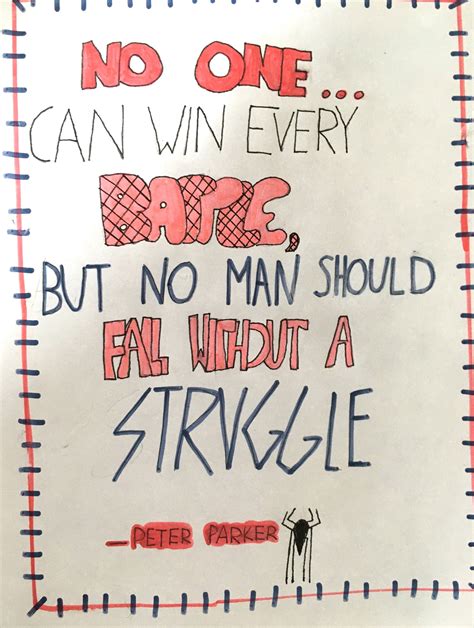 NO ONE...
CAN WIN EVERY
BATTLE,
BUT NO MAN SHOULD
FALL WITHOUT A
STRUGGLE
—PETER PARKER